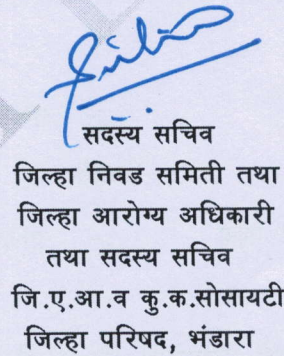 सदस्य सचिव
जिल्हा निवड समिती तथा
जिल्हा आरोग्य अधिकारी
तथा सदस्य सचिव
जि.ए.आ.व कु.क.सोसायटी
जिल्हा परिषद, भंडारा